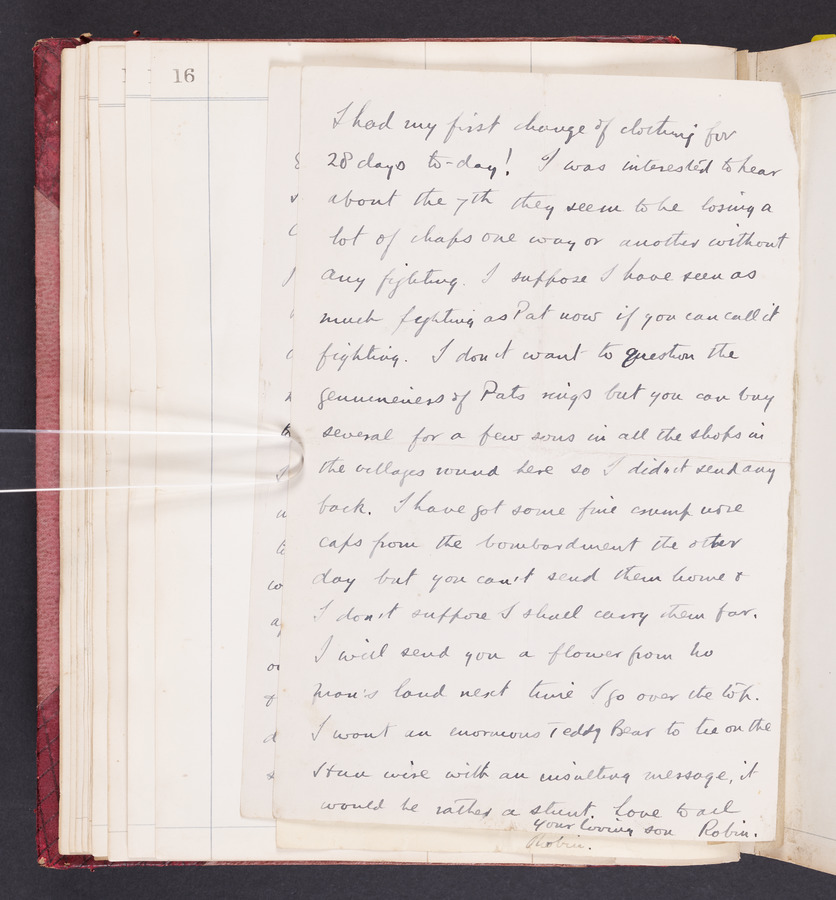 16
I had my first change of clothing for
28 days to-day! I was interested to hear
about the 7th they seem to be losing a
lot of chaps one way or another without
any fighting. I suppose I have seen as
much fighting as Pat now if you can call it
fighting. I don't want to question the
genuineness of Pats rings but you can buy
several for a few sous in all the shops in
the villages round here so I didn't send any
back. I have got some fine crump nose
caps from the bombardment the other
day but you can't send them home &
I don't suppose I shall carry them far.
I will send you a flower from no
man's land next time I go over the top.
I want an enormous Teddy Bear to tie on the
Hun wire with an insulting message, it
would be rather a stunt. Love to all
Your loving son Robin.
Robin.